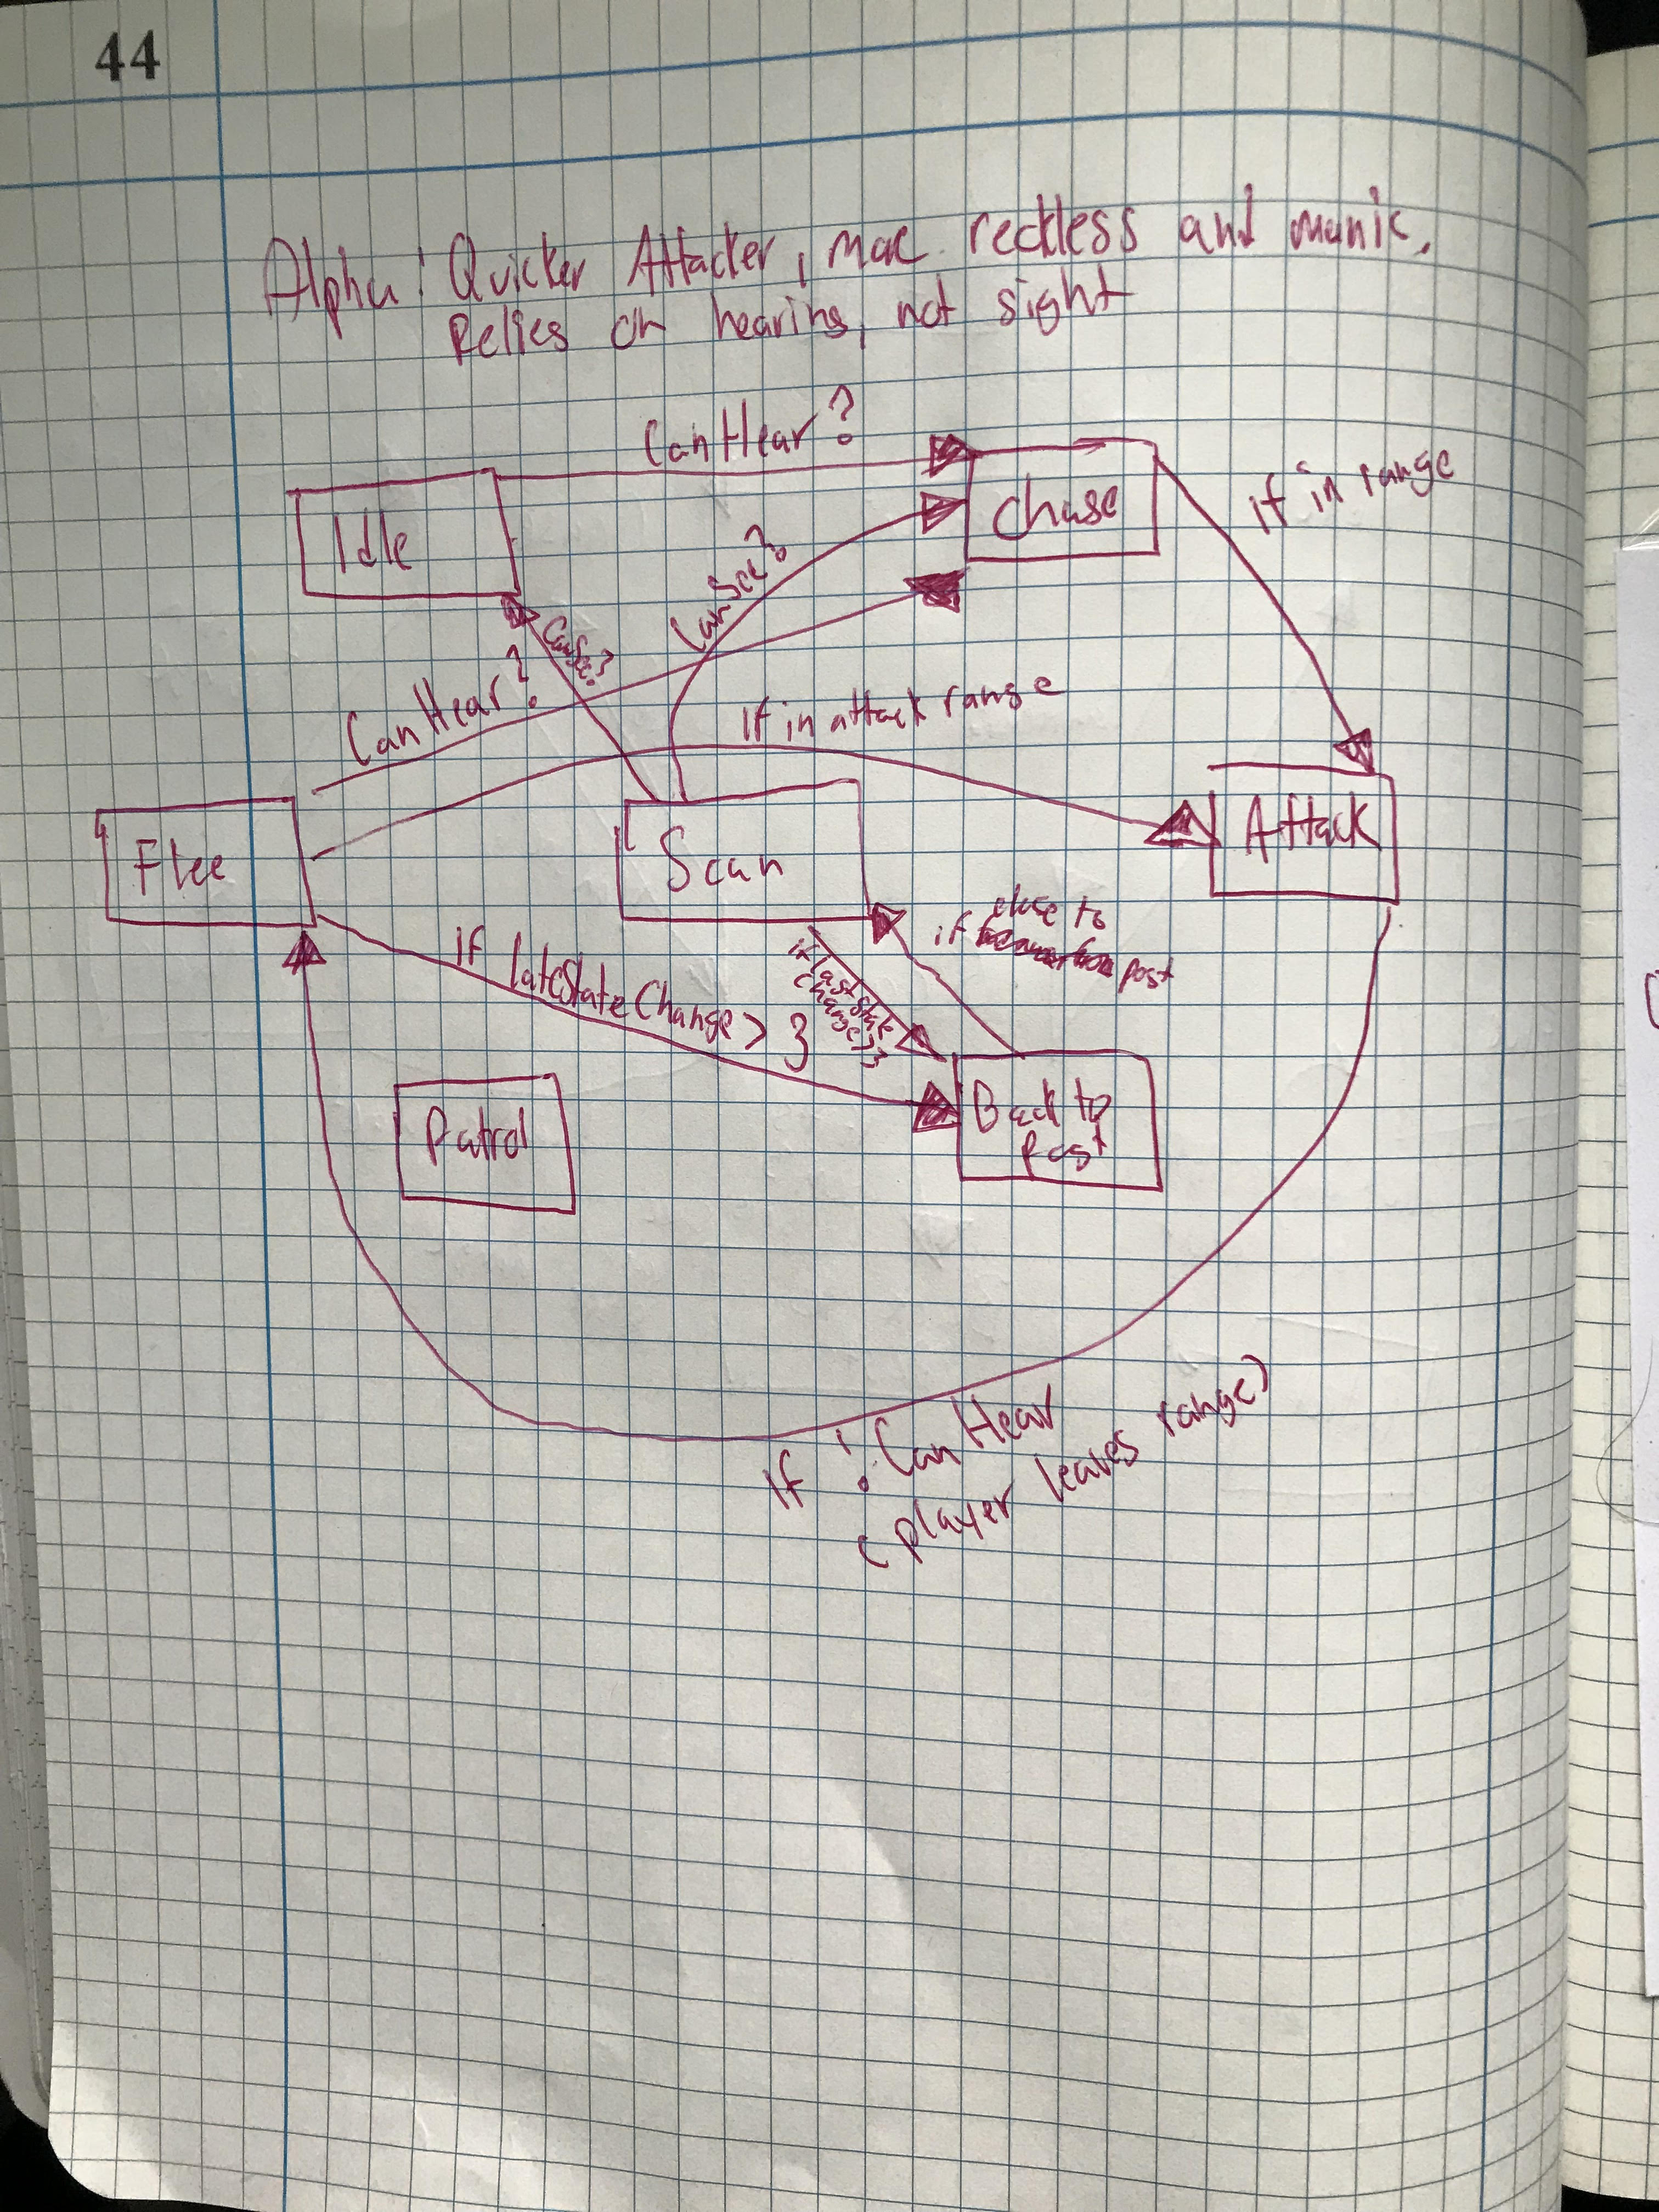 44
Alpha: Quicker Attacker, more reckless and manic.
Relies on hearing, not sight
Can Hear?
if in range
Idle
Chase
Can See?
CanSee?
Can Hear?
If in attack range
Flee
Scan
Attack
if close to post
if last state change > 3
if lateStateChange > 3
Patrol
Back to
Post
If !Can Hear
(player leaves range)